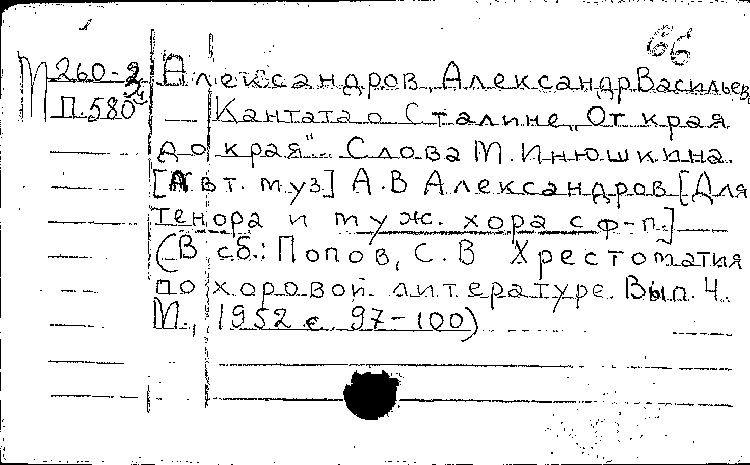 66
М 260-2
П.580
Александров, Александр Васильев
Кантата о Сталине „От края
до края". Слова М. Инюшкина.
[Авт. муз] А.В Александров [Для
тенора и муж. хора с ф-п.]
(В сб.: Попов, С.В Хрестоматия
по хоровой литературе. Вып. 4.
М., 1952 с. 97-100)